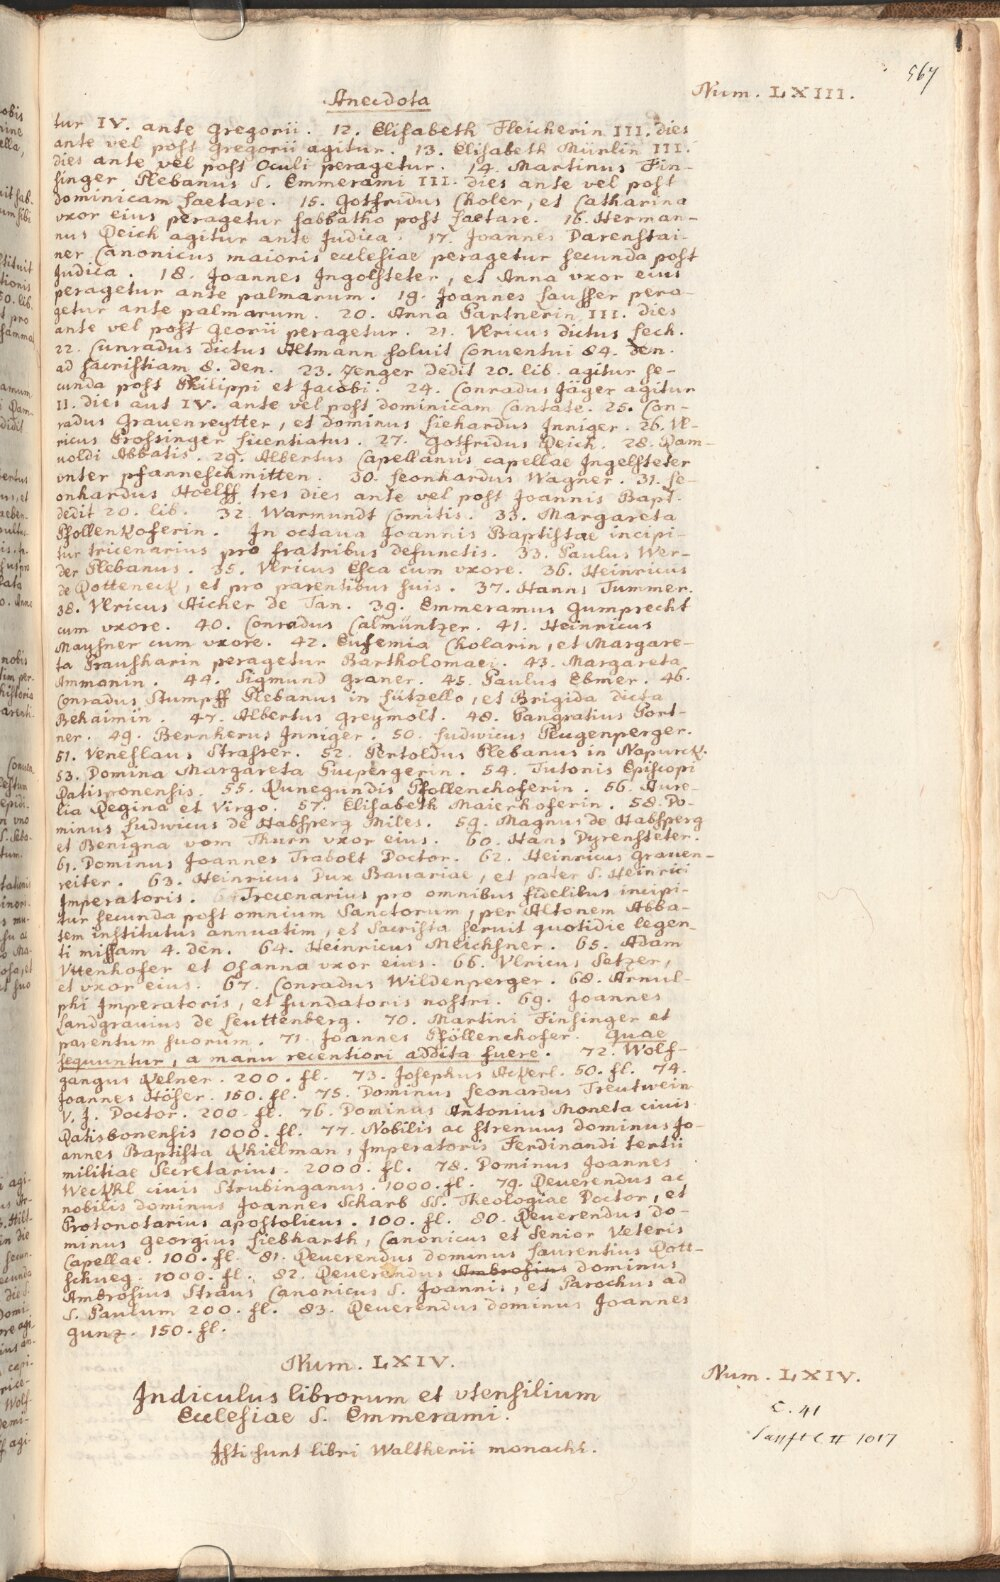 567
Anecdota
Num. LXIII.
tur IV. ante Gregorii. 12. Elisabeth Fleicherin III. dies
ante vel post Gregorii agitur. 13. Elisabeth Münlin III.
dies ante vel post Oculi peragetur. 14. Martinus Fin-
singer Plebanus S. Emmerami III. dies ante vel post
dominicam Laetare. 15. Gotfridus Choler, et Catharina
vxor eius peragetur sabbatho post Laetare. 16. Herman-
nus Reich agitur ante Judica. 17. Joannes Darenstai-
ner Canonicus maioris ecclesiae peragetur secunda post
Judica. 18. Joannes Ingolsteter, et Anna vxor eius
peragetur ante palmarum. 19. Joannes Lausser pera-
getur ante palmarum. 20. Anna Partnerin III. dies
ante vel post Georii peragetur. 21. Vlricus dictus Lech.
22. Cunradus dictus Altmann soluit Conuentui 84. den.
ad sacristiam 8. den. 23. Zenger dedit 20. lib. agitur se-
cunda post Philippi et Jacobi. 24. Conradus Jäger agitur
II. dies aut IV. ante vel post dominicam Cantate. 25. Con-
radus Grauenreytter, et dominus Liehardus Inniger. 26. Vl-
ricus Prossinger licentiatus. 27. Gotfridus Reich. 28. Ram-
uoldi Abbatis. 29. Albertus Capellanus capellae Ingelsteter
vnter pfanneschmitten. 30. Leonhardus Wagner. 31. Le-
onhardus Hoelff tres dies ante vel post Joannis Bapt.
dedit 20. lib. 32. Warmundt Comitis. 33. Margareta
Pfollenkoferin. In octaua Joannis Baptistae incipi-
tur tricenarius pro fratribus defunctis. 33. Paulus Wer-
der Plebanus. 35. Vlricus Esca cum vxore. 36. Heinricus
de Rotteneck, et pro parentibus suis. 37. Hanns Tummer.
38. Vlricus Aicher de Tan. 39. Emmeramus Gumprecht
cum vxore. 40. Conradus Calmüntzer. 41. Heinricus
Maysner cum vxore. 42. Eufemia Cholarin, et Margare-
ta Prausharin peragetur Bartholomaei. 43. Margareta
Ammonin. 44. Sigmund Graner. 45. Paulus Ebmer. 46.
Conradus Stumpff Plebanus in Lützello, et Brigida dicta
Behaimin. 47. Albertus Greymolt. 48. Pangratius Port-
ner. 49. Bernherus Inniger. 50. Ludwicus Pleugenperger.
51. Veneslaus Strasser. 52. Pertoldus Plebanus in Napurck.
53. Domina Margareta Puepergerin. 54. Tutonis Episcopi
Ratisponensis. 55. Kunegundis Pfollenchoferin. 56. Aure-
lia Regina et Virgo. 57. Elisabeth Maierhoferin. 58. Do-
minus Ludwicus de Habsperg Miles. 59. Magnus de Habsperg
et Benigna vom Thurn vxor eius. 60. Hans Dyrensteter.
61. Dominus Joannes Trabolt Doctor. 62. Heinricus Grauen-
reiter. 63. Heinricus Dux Bauariae, et pater S. Heinrici
Imperatoris. Trecenarius pro omnibus fidelibus incipi-
tur secunda post omnium Sanctorum, per Altonem Abba-
tem institutus annuatim, et Sacrista seruit quotidie legen-
ti missam 4. den. 64. Heinricus Meichsner. 65. Adam
Vttenhofer et Osanna vxor eius. 66. Vlricus Setzer,
et vxor eius. 67. Conradus Wildenperger. 68. Arnul-
phi Imperatoris, et fundatoris nostri. 69. Joannes
Landgrauius de Leuttenberg. 70. Martini Finsinger et
parentum suorum. 71. Joannes Pföllenchofer. Quae
sequuntur, a manu recentiori addita fuere. 72. Wolf-
gangus Kelner. 200. fl. 73. Josephus Ackerl. 50. fl. 74.
Joannes Höser. 150. fl. 75. Dominus Leonardus Treutwein
V. J. Doctor. 200. fl. 76. Dominus Antonius Moneta ciuis
Ratisbonensis 1000. fl. 77. Nobilis ac strenuus dominus Jo-
annes Baptista Khielman, Imperatoris Ferdinandi tertii
militiae Secretarius. 2000. fl. 78. Dominus Joannes
Weckhl ciuis Strubinganus. 1000. fl. 79. Reuerendus ac
nobilis dominus Joannes Scharb SS. Theologiae Doctor, et
Protonotarius apostolicus. 100. fl. 80. Reuerendus do-
minus Georgius Liebharth, Canonicus et Senior Veteris
Capellae. 100. fl. 81. Reuerendus dominus Laurentius Rott-
schueg. 1000. fl. 82. Reuerendus Ambrosius dominus
Ambrosius Straus Canonicus S. Joannis, et Parochus ad
S. Paulum 200. fl. 83. Reuerendus dominus Joannes
Gunz. 150. fl.
Num. LXIV.
Num. LXIV.
Indiculus librorum et vtensilium
Ecclesiae S. Emmerami.
C. 41
Isti sunt libri Waltherii monachi.